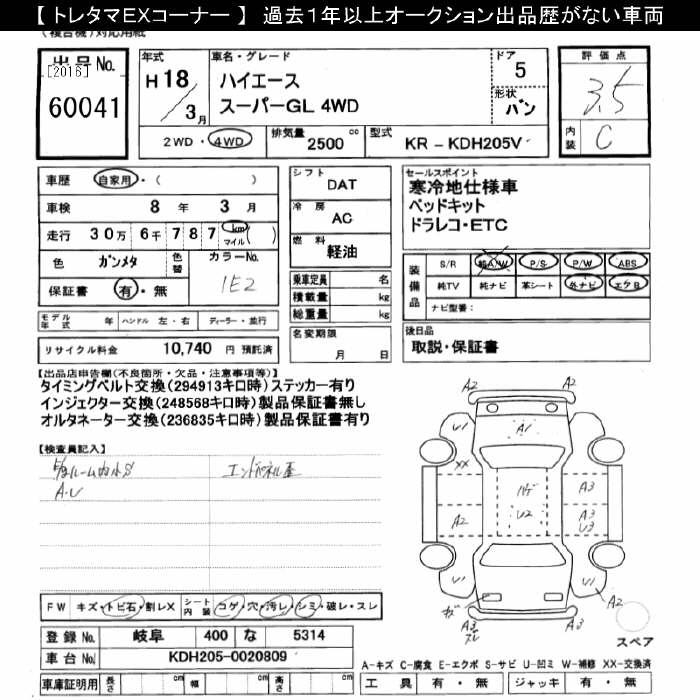 【 トレタマEXコーナー 】 過去1年以上オークション出品歴がない車両
出品No.
[2016]
60041
年式
H18
3月
車名・グレード
ハイエース
スーパーGL 4WD
ドア
5
形状
バン
評価点
3.5
内装
C
2WD・4WD
排気量
2500 cc
型式
KR-KDH205V
車歴 自家用・( )
車検 8年 3月
走行 30万 6千 787 km マイル ( )
色 ガンメタ
色替
カラーNo.
1E2
保証書 有・無
モデル年式 年 ハンドル 左・右 ディーラー・並行
リサイクル料金 10,740 円 預託済
シフト
DAT
冷房
AC
燃料
軽油
乗車定員 名
積載量 kg
総重量 kg
名変期限
月 日
セールスポイント
寒冷地仕様車
ベッドキット
ドラレコ・ETC
装備品
S/R 純A/W P/S P/W ABS
純TV 純ナビ 革シート 外ナビ エアB
ナビ型番:
後日品
取説・保証書
【出品店申告欄(不良箇所・欠品・注意事項等)】
タイミングベルト交換(294913キロ時)ステッカー有り
インジェクター交換(248568キロ時)製品保証書無し
オルタネーター交換(236835キロ時)製品保証書有り
【検査員記入】
A・U
エンドパネル歪
A2
A2
U1
A1
U1
XX
A2
ハゲ
U2
A3
A3
U3
U1
U1
A2
A3
スレ
A3
スペア
FW キズ・トビ石・割レX シート内装 コゲ・穴・汚レ・シミ・破レ・スレ
登録No. 岐阜 400 な 5314
車台No. KDH205-0020809
車庫証明用 長さ cm 幅 cm 高さ cm
A-キズ C-腐食 E-エクボ S-サビ U-凹ミ W-補修 XX-交換済
工具 有・無 ジャッキ 有・無